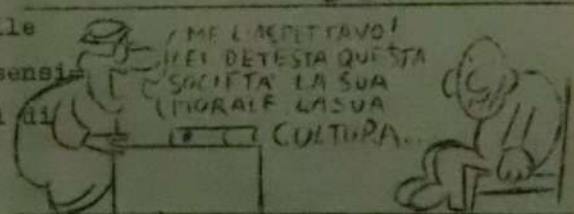 lle
sensi=
i di
ME L'ASPETTAVO!
LEI DETESTA QUESTA
SOCIETÀ LA SUA
MORALE LA SUA
CULTURA..